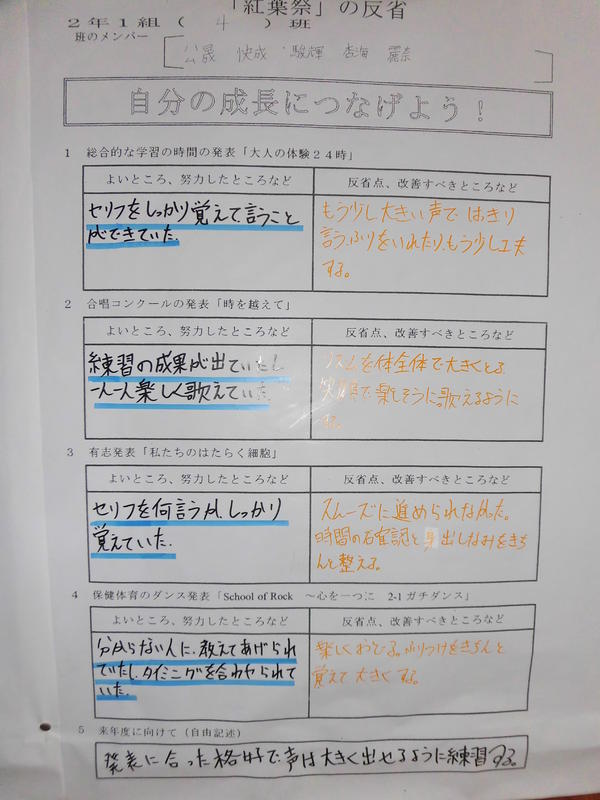 「紅葉祭」の反省
2年1組（ 4 ）班
班のメンバー
公晟 快成 駿輝 杏海 麗奈
自分の成長につなげよう！
1 総合的な学習の時間の発表「大人の体験24時」
よいところ、努力したところなど 反省点、改善すべきところなど
セリフをしっかり覚えて言うこと
ができていた。
もう少し大きい声で はきり
言う。ふりをいれたり、もう少し工夫
する。
2 合唱コンクールの発表「時を越えて」
よいところ、努力したところなど 反省点、改善すべきところなど
練習の成果が出ていたし
一人一人楽しく歌えていた。
リズムを体全体で大きくとる
で楽しそうに歌えるように
する。
3 有志発表「私たちのはたらく細胞」
よいところ、努力したところなど 反省点、改善すべきところなど
セリフを何言うか、しっかり
覚えていた。
スムーズに進められなかった。
時間の確認と身出しなみをきち
んと整える。
4 保健体育のダンス発表「School of Rock ～心を一つに 2-1ガチダンス」
よいところ、努力したところなど 反省点、改善すべきところなど
分からない人に、教えてあげられ
ていたし、タイミングを合わせられて
いた。
楽しくおどる。ふりつけをきちんと
覚えて大きくする。
5 来年度に向けて（自由記述）
発表に合った格好で、声は大きく出せるように練習する。